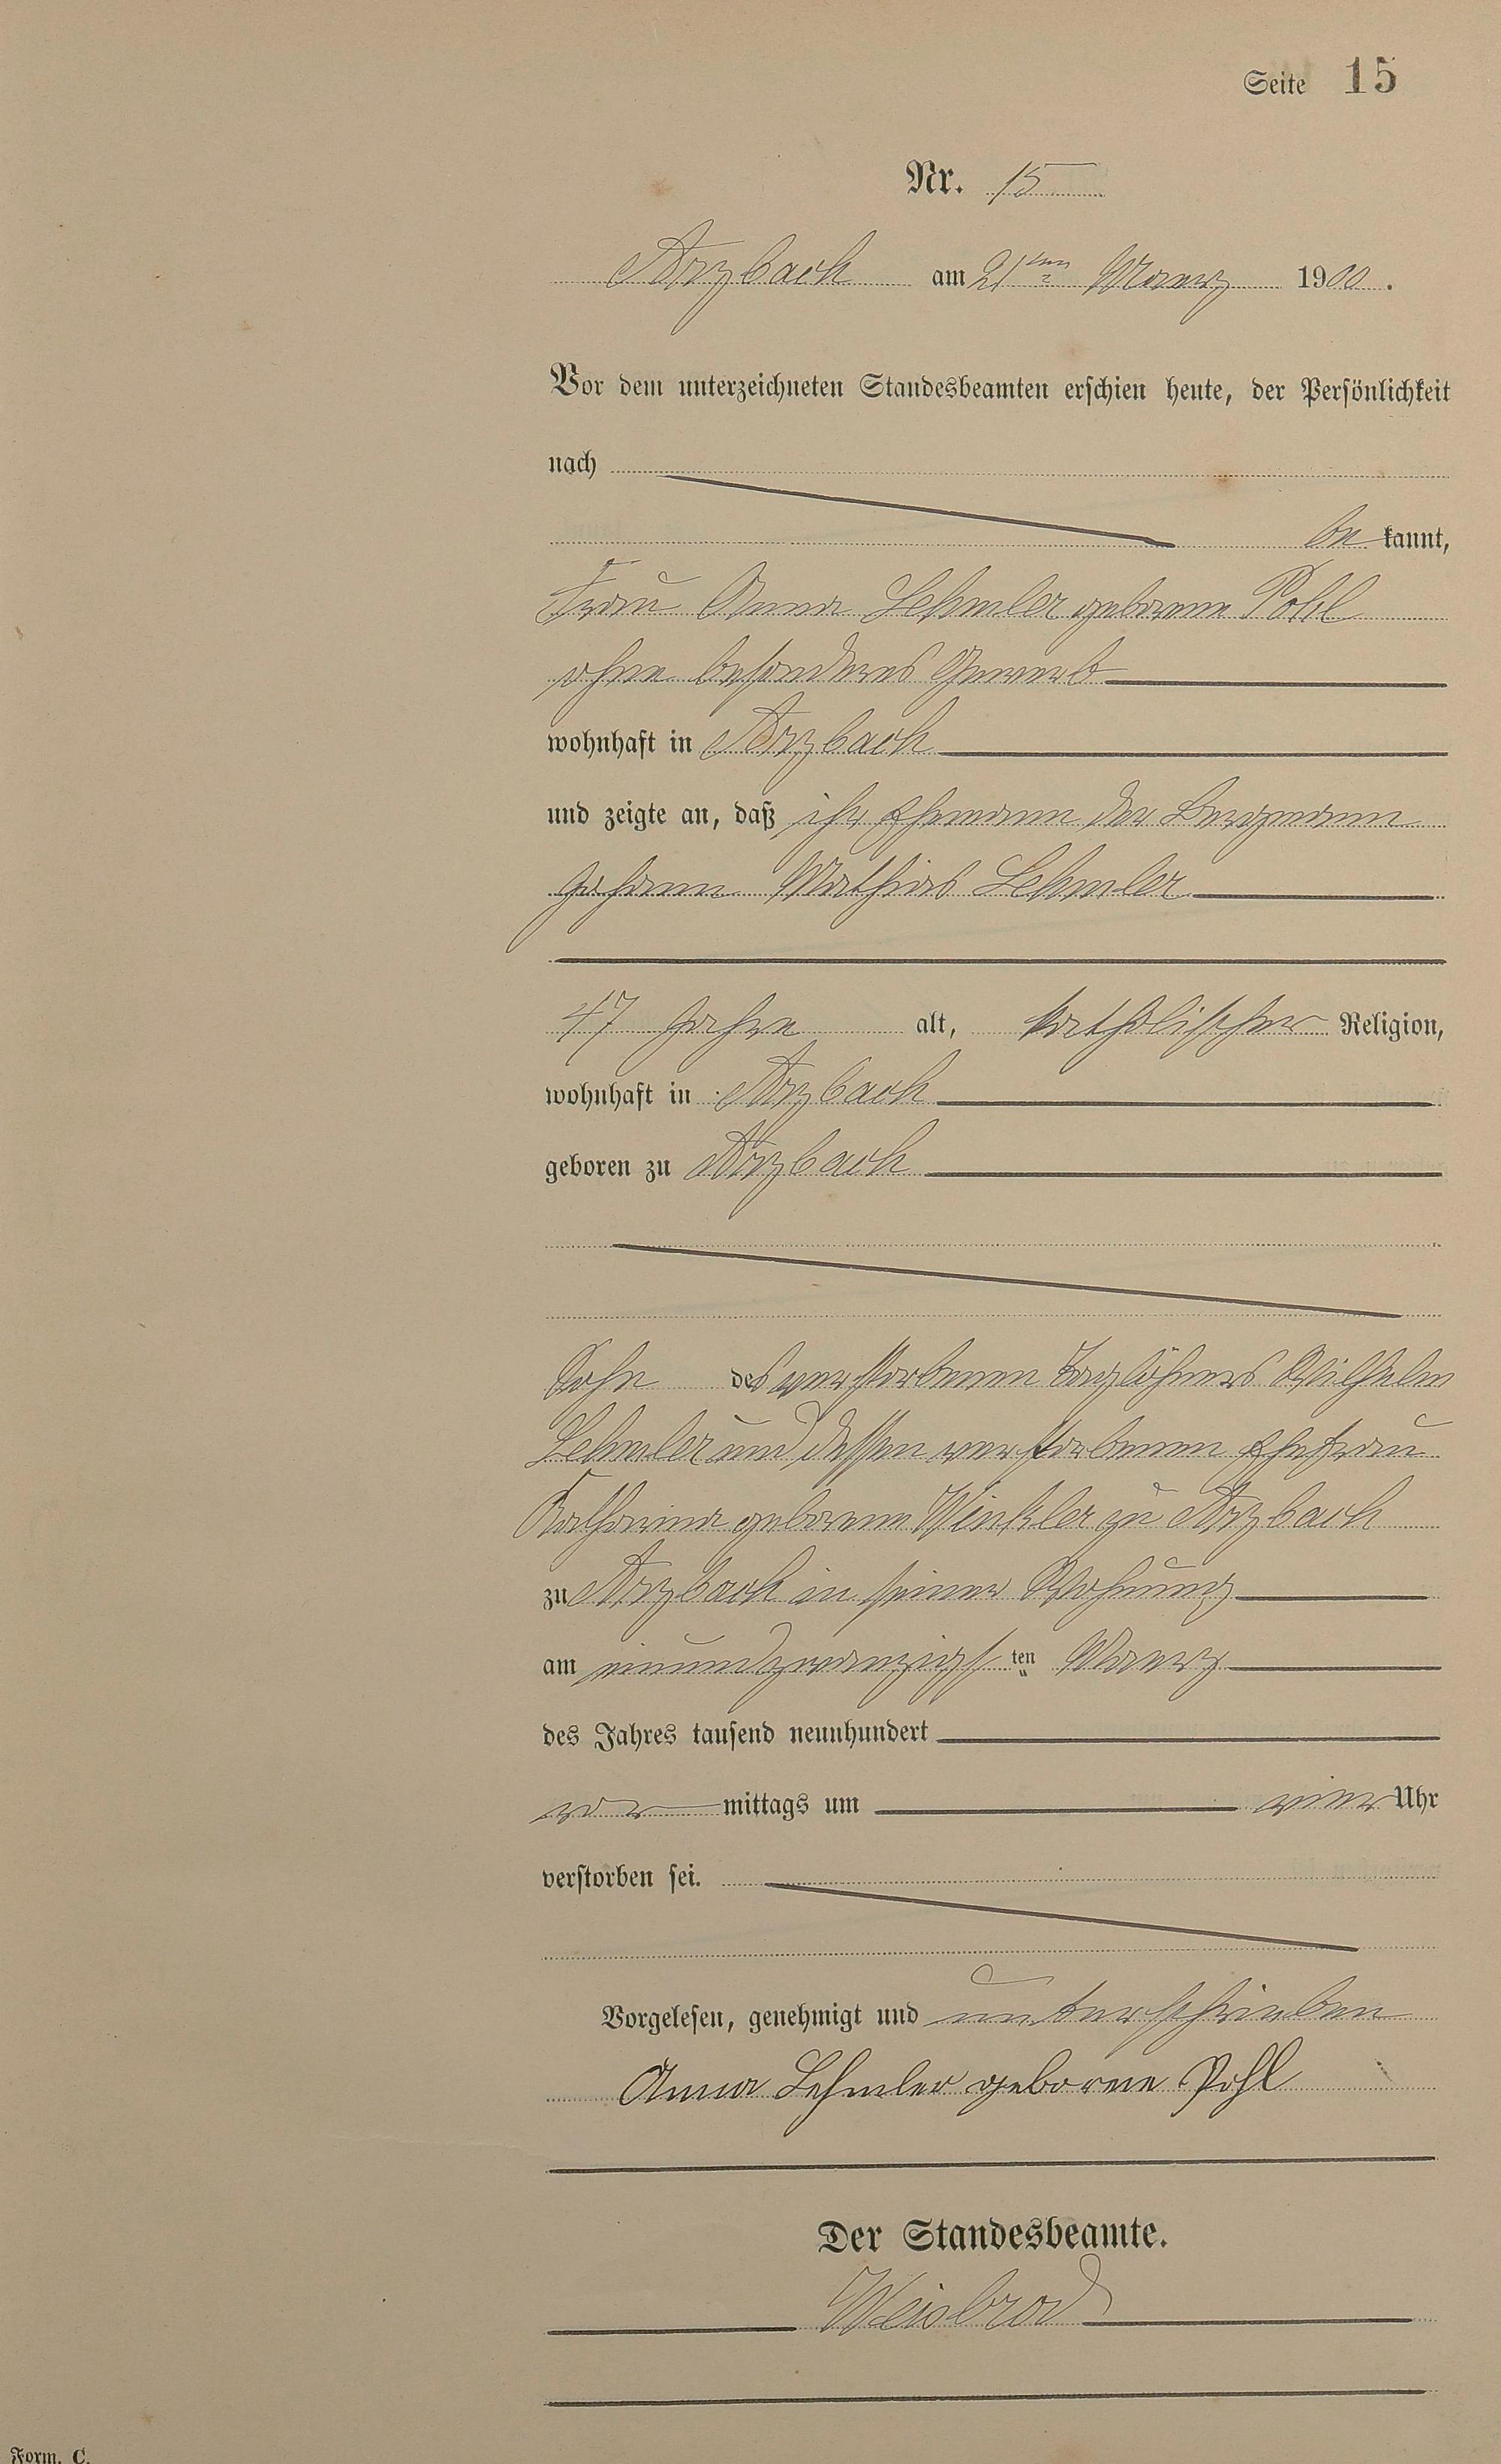 Seite 15
Nr. 15
Arzbach am 21ten Maerz 1900.
Vor dem unterzeichneten Standesbeamten erschien heute, der Persönlichkeit
nach
be kannt,
Frau Anna Lehmler geborene Pohl
ohne besonderes Gewerb
wohnhaft in Arzbach
und zeigte an, daß ihr Ehemann der Bergmann
Johann Mathias Lehmler
47 Jahre alt, katholischer Religion,
wohnhaft in Arzbach
geboren zu Arzbach
Sohn des verstorbenen Taglöhners Wilhelm
Lehmler und dessen verstorbenen Ehefrau
Katharina geborene Winkler zu Arzbach
zu Arzbach in seiner Wohnung
am einundzwanzigs ten Maerz
des Jahres tausend neunhundert
vor mittags um vier Uhr
verstorben sei.
Vorgelesen, genehmigt und unterschrieben
Anna Lehmler geborene Pohl
Der Standesbeamte.
Weisbrod
Form. C.